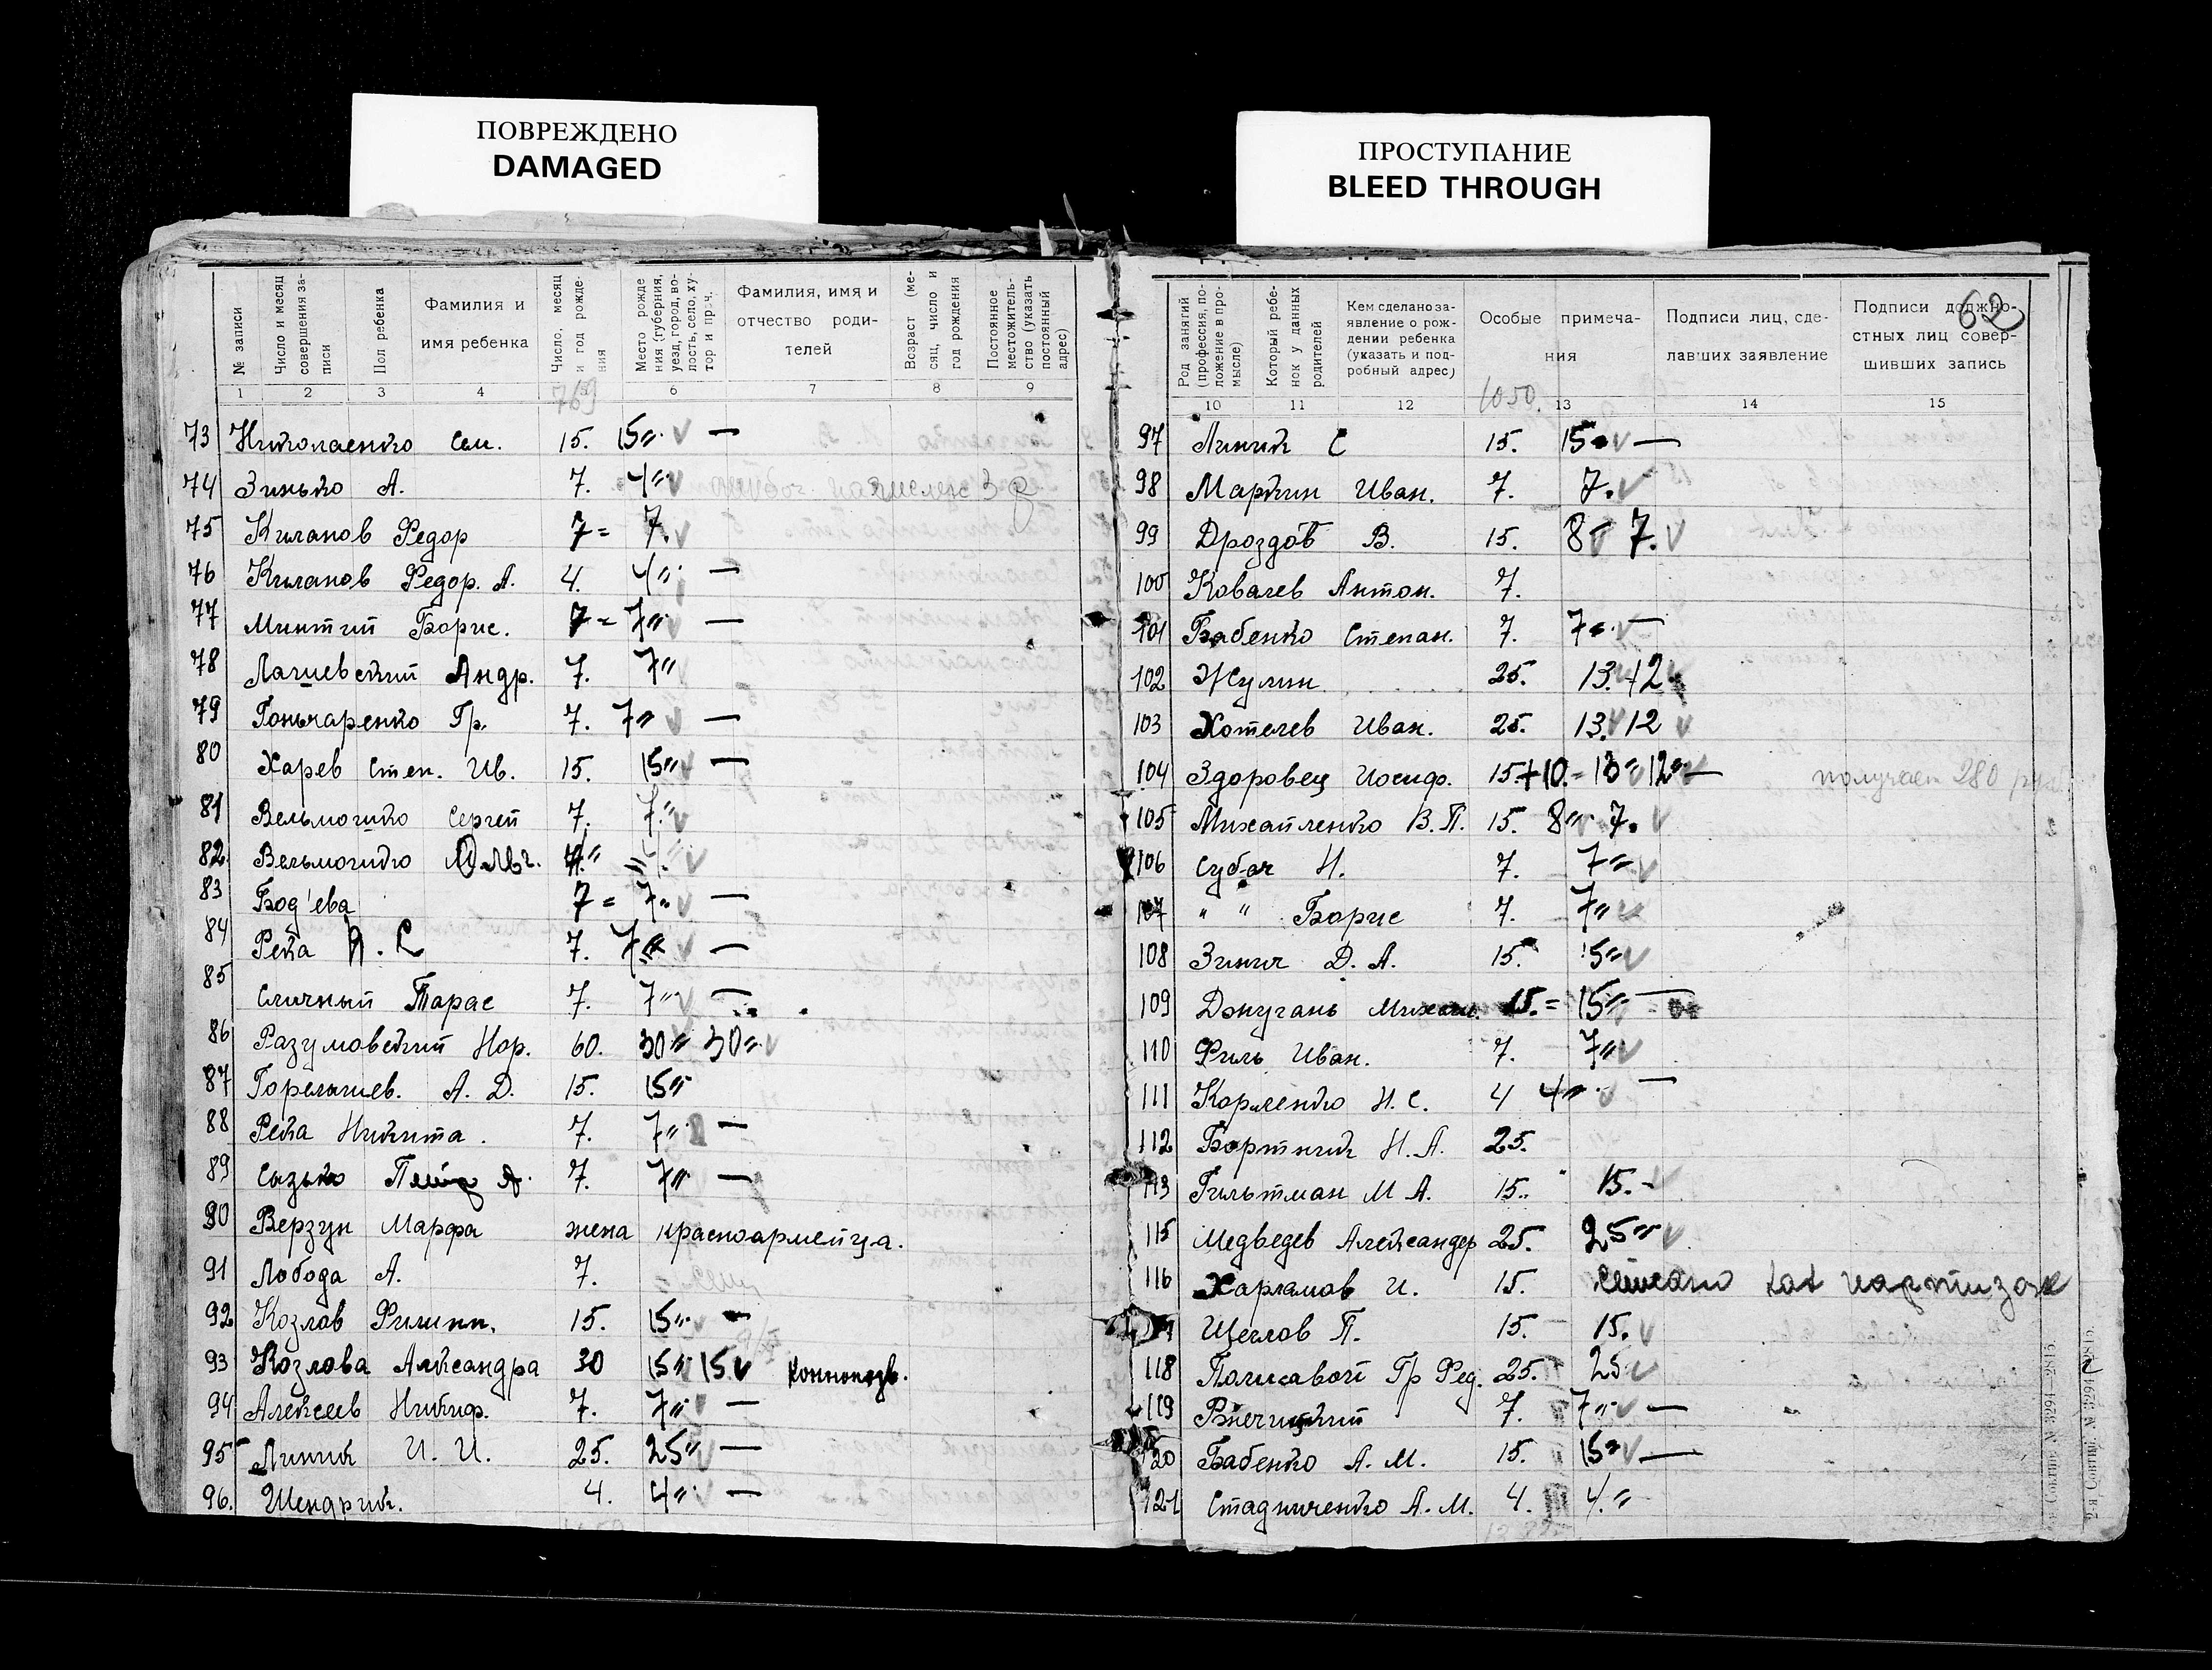 ПОВРЕЖДЕНО
DAMAGED
ПРОСТУПАНИЕ
BLEED THROUGH
№ записи
Число и масяц совершения записи
Пол ребенка
Фамилия и
имя ребенка
Число, месяц и год рождения
Место рожде
ния (губерния,
уезд, город, во-
лость, село, ху-
тор и проч.
Фамилия, имя и
отчество роди-
телей
Возраст (ме-
сяц, число и
год рождения
Постоянное
местожитель-
ство (указать
постоянный
адрес)
1 2 3 4 6 7 8 9
73 Николаенко Сем. 15. 15 —
74 Зинько А. 7.
75 Киланов Федор 7 = 7.
76 Киланов Федор. А. 4. 4 —
77 Минтий Борис. 7 = 7 —
78 Андр. 7. 7
79 Гоньчаренко Гр. 7. 7 —
80 Харев Степ. Ив. 15. 15 —
81 Вельмогико Сергей 7. 7.
82 Вельмогико
83 Бод'ева 7 = 7 —
84 Река 7. 7 —
85 Сличный Тарас 7. 7 —
86 Разумовский Нор. 60. 30 30
87 Горелышев. А. Д. 15. 15
88 Река Никита. 7. 7 —
89 7. 7 —
90 Верзун Марфа жена красноармейца.
91 Лобода А. 7.
92 Козлов Филипп. 15. 15 —
93 Козлова Александра 30 15 15
94 Алексеев Никиф. 7. 7 —
95 Линик И. И. 25. 25 —
96. Шендрик. 4. 4 —
62
Род занятий
(профессия, по-
ложение в про-
мысле)
Который ребе-
нок у данных
родителей
Кем сделано за-
явление о рож-
дении ребенка
(указать и под-
робный адрес)
Особые примеча-
ния
Подписи лиц, сде-
лавших заявление
Подписи должно-
стных лиц совер-
шивших запись
1050.
10 11 12 13 14 15
97 Линик С 15. 15 —
98 Маркин Иван. 7. 7.
99 Дроздов В. 15. 8 7.
100 Ковалев Антон. 7.
101 Бабенко Степан. 7. 7 —
102 Жулин 25. 13. 12
103 Хотелев Иван. 25. 13. 12
104 Здоровец Иосиф. 15.+10.= 13 12 — получает 280 руб
105 Михайленко В. П. 15. 8 7.
106 Субач Н. 7. 7
107 " " Борис 7. 7
108 Зинич Д. А. 15. 15
109 Джугань 15.= 15 —
110 Филь Иван. 7. 7
111 Корленко Н. С. 4 4 —
112 Бортник Н. А. 25.
113 Гильтман М А. 15. 15.
115 Медведев Александер 25. 25
116 Харламов И. 15.
Щеглов П. 15. 15.
118 Полисавой Гр Фед. 25. 25
119 7. 7 —
120 Бабенко А. М. 15. 15 —
121 Стадниченко А. М. 4. 4.
2-я Совтип. № 3294 2815.